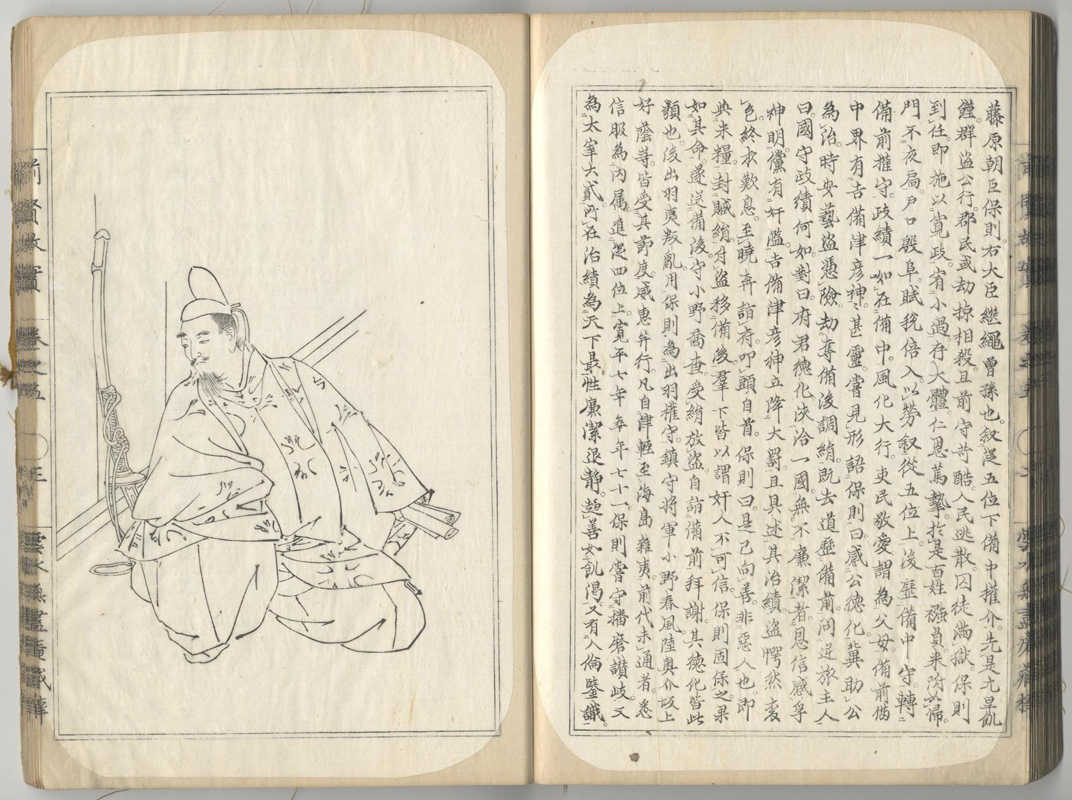 藤原朝臣保則。右大臣継縄曾孫也。叙従五位下備中権介。先是尤旱飢
饉。群盗公行。郡民或劫掠相殺。且前守苛酷。人民逃散。囚徒満獄。保則
到任。即施以寛政。宥小過。存大體。仁恩篤摯。於是百姓襁負来附。如帰。
門不夜扃。戸口殷阜。賦税倍入。以労叙従五位上。後歴備中守。轉
備前権守。政績一如在備中。風化大行。吏民敬愛謂為父母。備前備
中界有吉備津彦神。神甚靈。嘗見形語保則曰。感公徳化。冀助公
為治。時安藝盗憑險。劫奪備後調絹。既去。道歴備前。問逆旅主人
曰。國守政績何如。對曰。府君徳化浹洽一國。無不廉潔者。恩信感孚
神明。儻有奸濫。吉備津彦神立降大罰。且具述其治績。盗愕然変
色。終夜歎息。至曉奔詣府。叩頭自首。保則曰。是已向善。非悪人也。即
與米糧。封賊絹。付盗移備後。羣下皆以謂奸人不可信。保則固保之。果
如其命。遂送備後。守小野喬査受絹放盗。自詣備前拜謝。其徳化皆此
類也。後出羽夷叛亂。用保則為出羽権守。鎮守将軍小野春風。陸奥介坂上
好蔭等。皆受其節度。威恵并行。凡自津軽至海島。雑夷前代未通者。悉
信服為内属。進従四位上。寛平七年卒。年七十一。保則嘗守播磨讃岐。又
為太宰大貳。所在治績為天下最。性廉潔退静。趨善如飢渇。又有人倫鑒識。
前賢故實